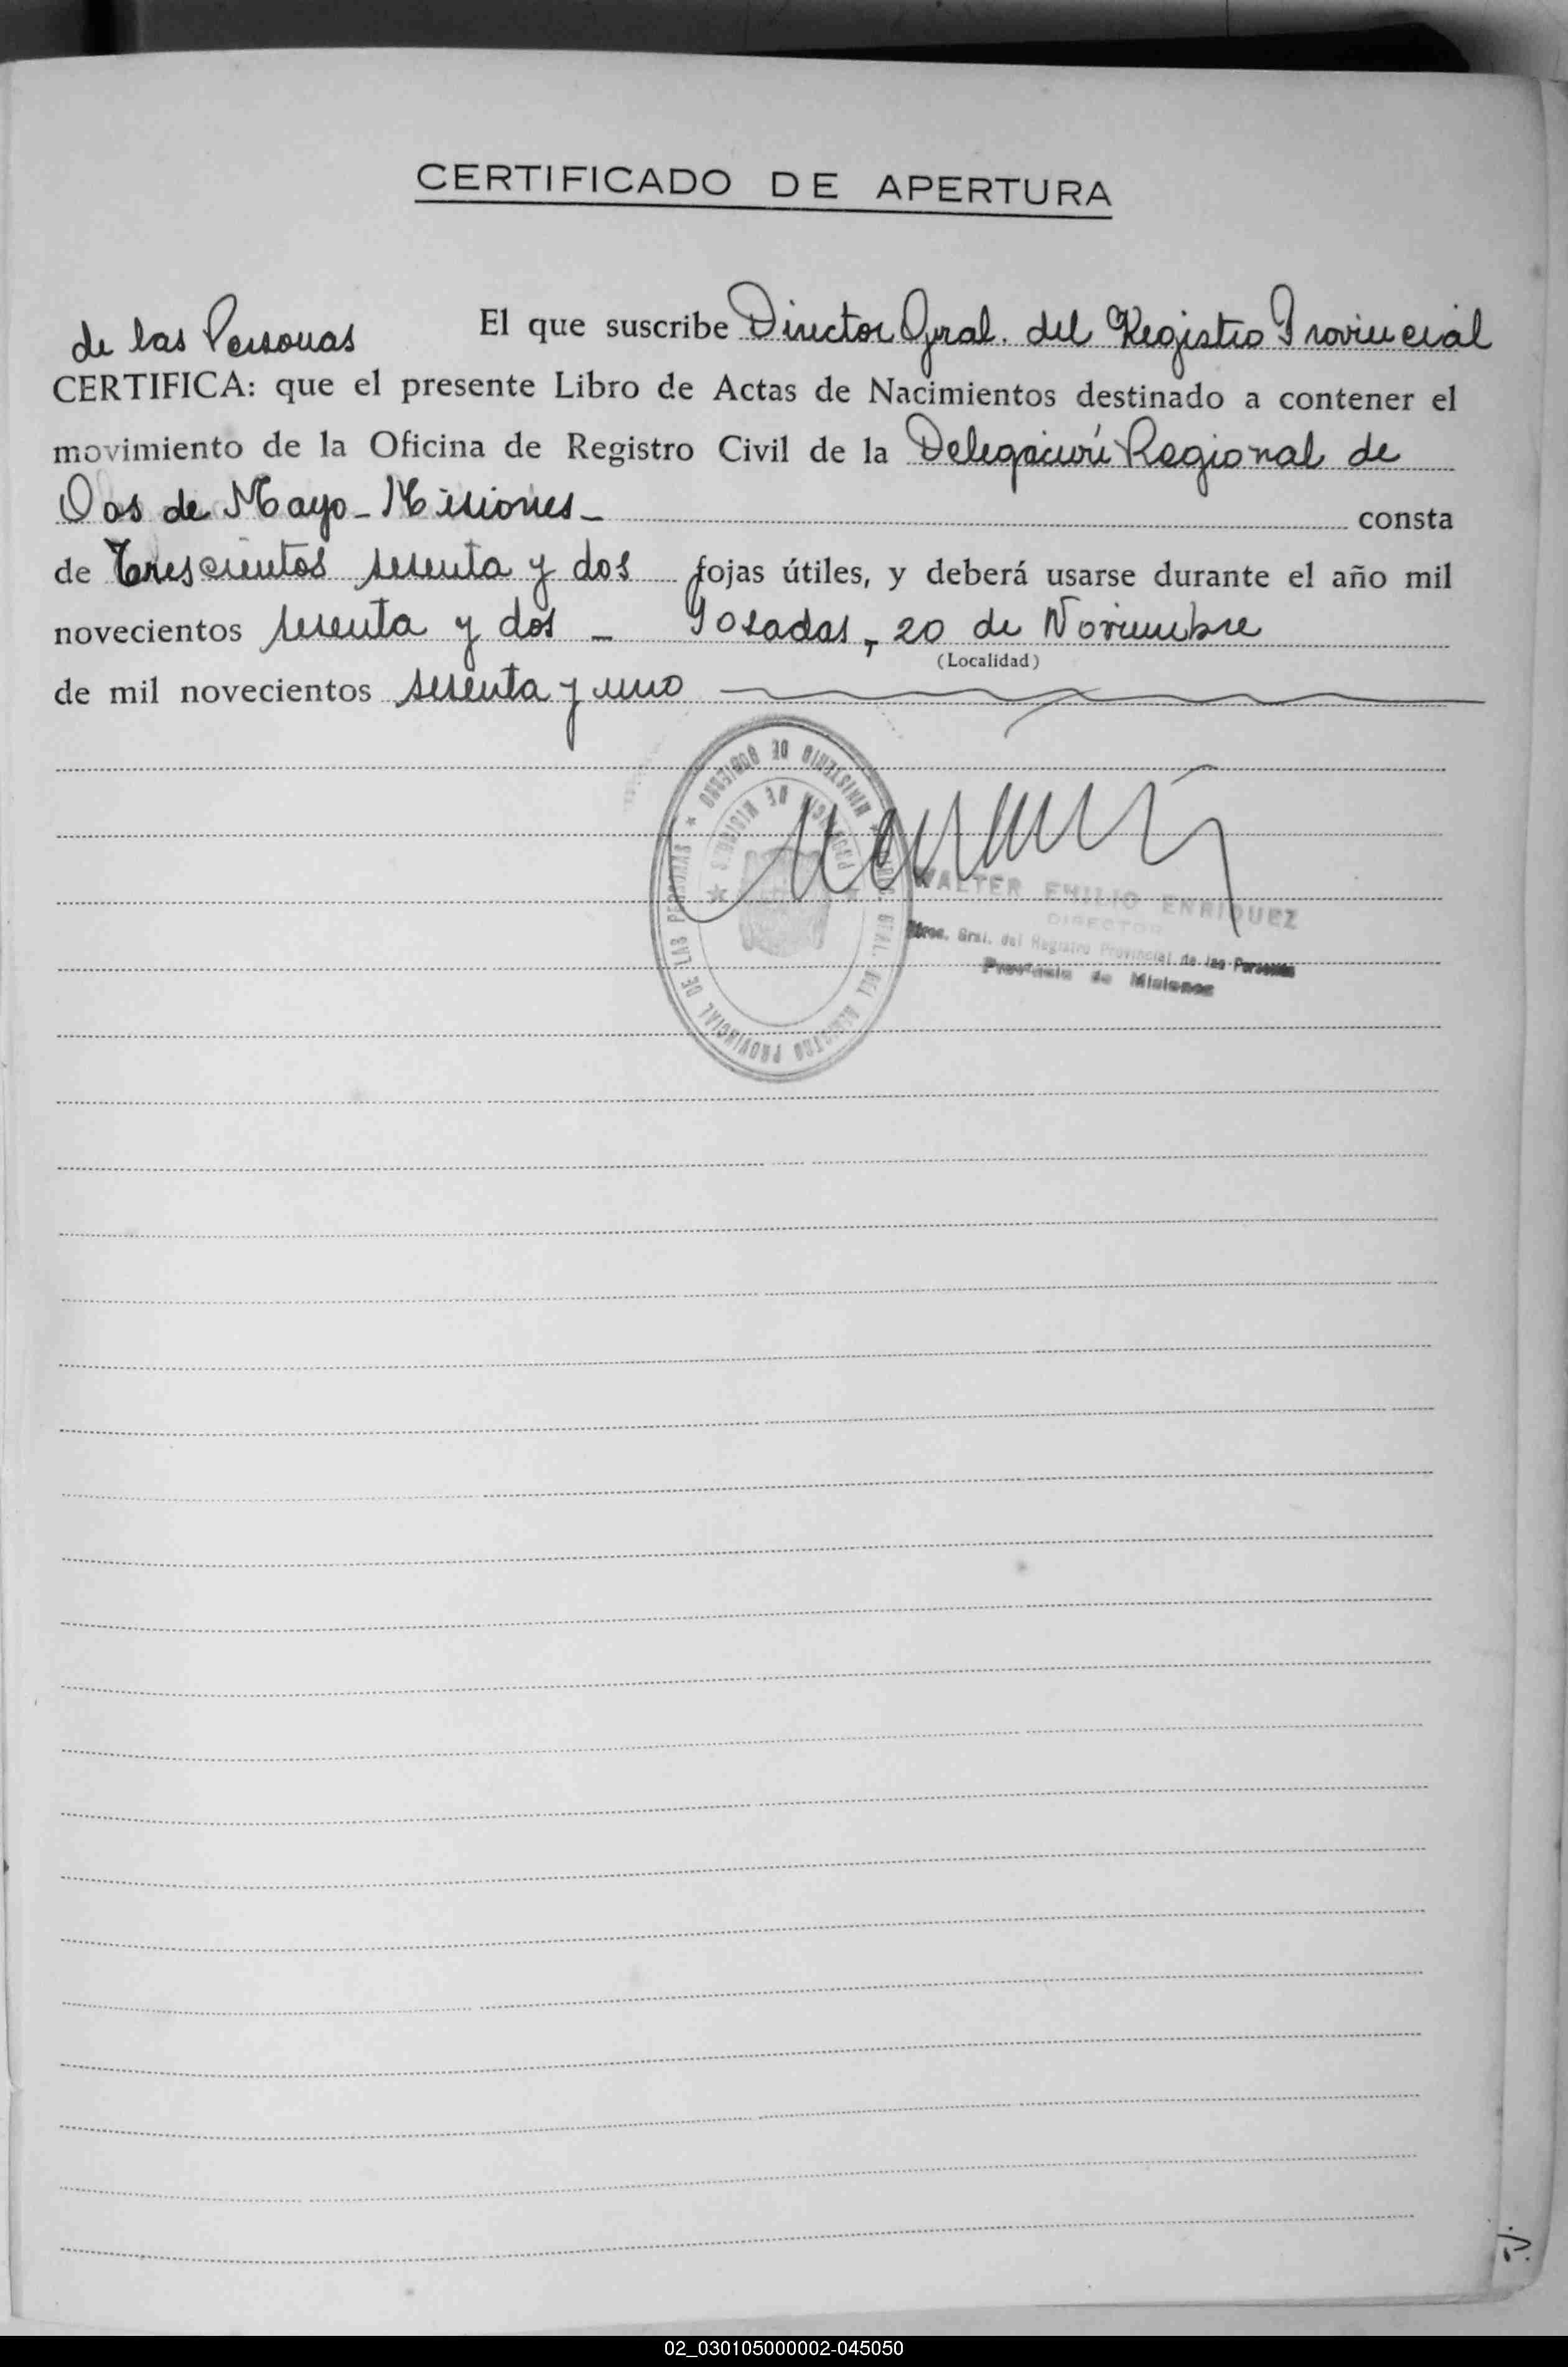 CERTIFICADO DE APERTURA
El que suscribe Director Gral. del Registro Provincial
de las Personas
CERTIFICA: que el presente Libro de Actas de Nacimientos destinado a contener el
movimiento de la Oficina de Registro Civil de la Delegación Regional de
Dos de Mayo - Misiones -
consta
de Trescientos sesenta y dos fojas útiles, y deberá usarse durante el año mil
novecientos sesenta y dos - Posadas, 20 de Noviembre
(Localidad)
de mil novecientos sesenta y uno
MINISTERIO DE GOBIERNO
PROVINCIA DE MISIONES
GRAL. DEL REGISTRO PROVINCIAL DE LAS PERSONAS
WALTER EMILIO ENRIQUEZ
DIRECTOR
Direc. Gral. del Registro Provincial de las Personas
Provincia de Misiones
02_030105000002-045050